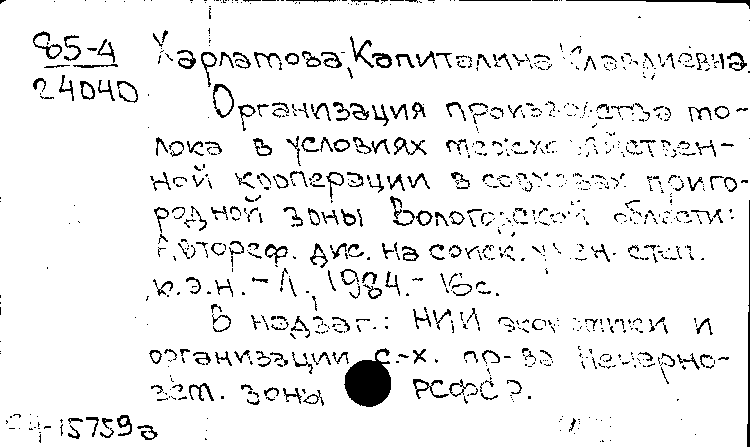 85-4 Харламова, Капиталина Клавдиевна.
24040
Организация производства мо-
лока в условиях межхозяйствен-
ной кооперации в совхозах приго-
родной зоны Вологодской области:
Автореф. дис. на соиск. учен. степ.
к.э.н. - Л., 1984. - 16 с.
В надзаг.: НИИ экономики и
организации с.-х. пр-ва Нечерно-
зем. зоны РСФСР.
-15759а